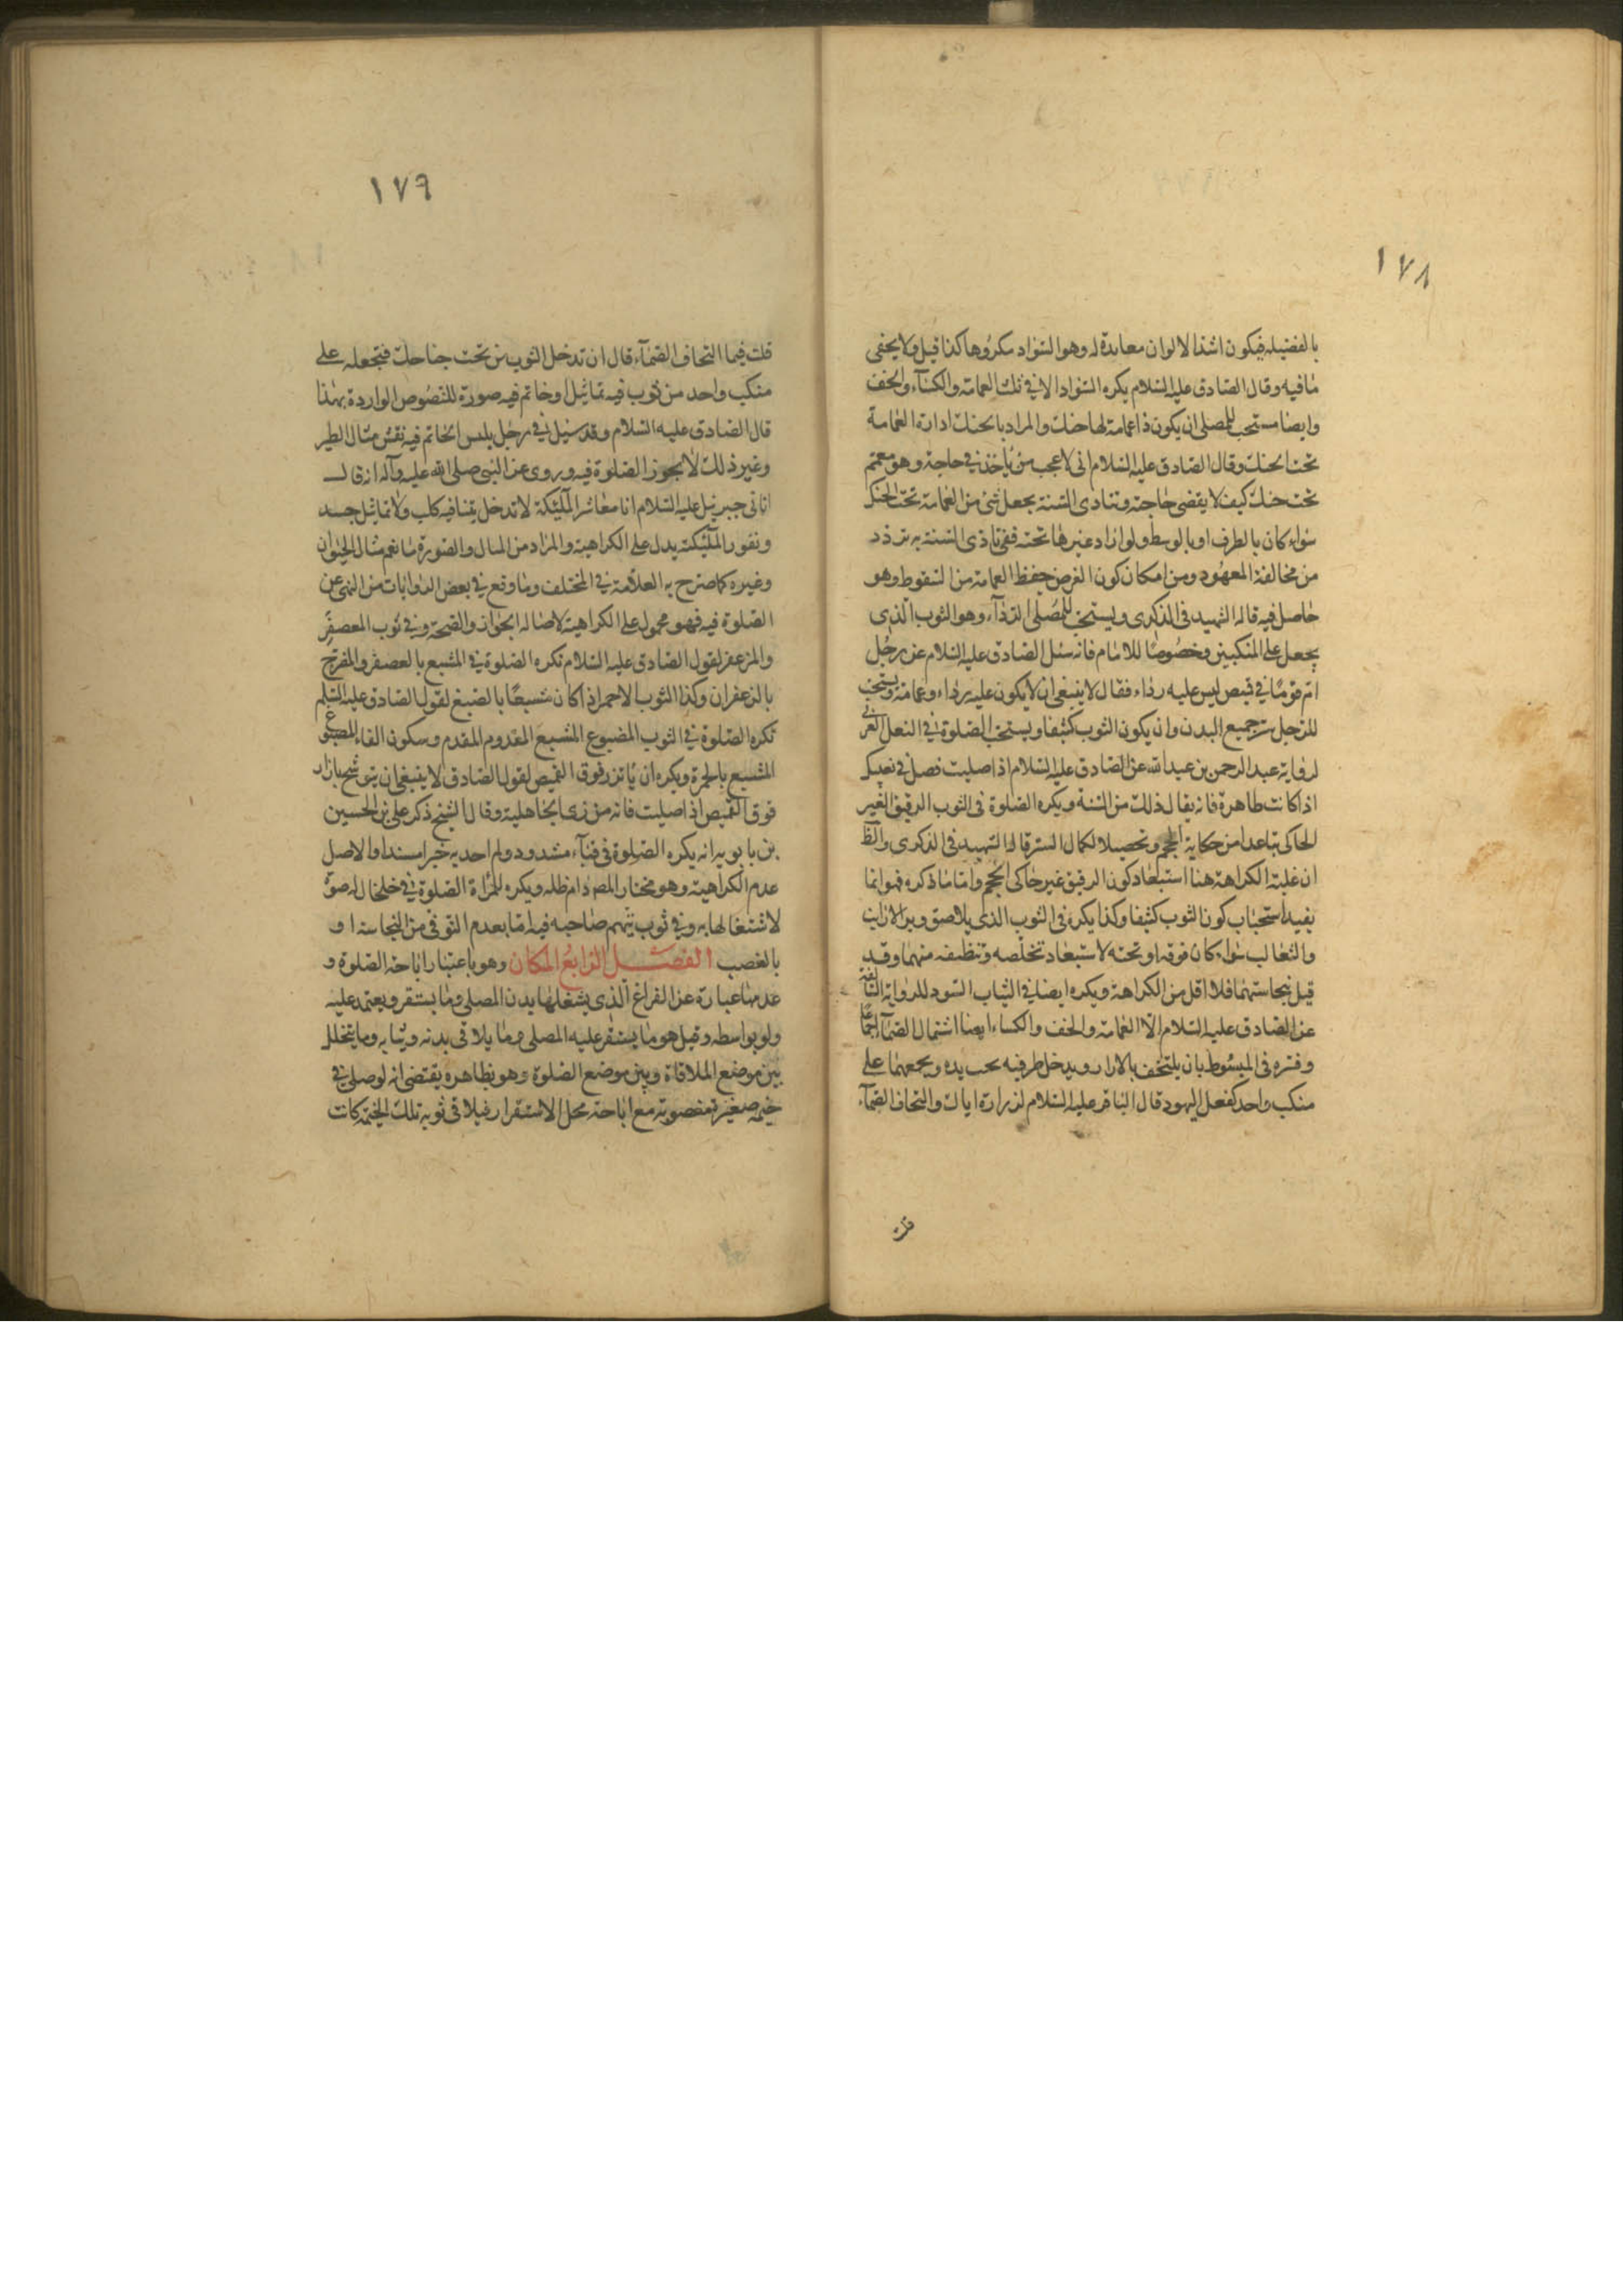 ١٧٨
بالفضيله فيكون اشد الالوان معاندة له وهو السواد مكروها كذا قيل ولا يخفى
ما فيه وقال الصادق عليه السلام يكره السواد الا في ثلث العمامة والكساء والخف
وايضا مستحب للمصلى ان يكون ذا عمامة لها حنك والمراد بالحنك ادارة العمامة
تحت الحنك وقال الصادق عليه السلام انى لاعجب ممن ياخذ في حاجة وهو معتم
تحت حنك كيف لا يقضى حاجته وتتادى السنة بجعل شئ من العمامة تحت الحنك
سواء كان بالطرف او بالوسط ولو ادار غيرها تحته ففي تادى السنة به تردد
من مخالفة المعهود ومن امكان كون الغرض حفظ العمامة من السقوط وهو
حاصل فيه قاله الشهيد فى الذكرى ويستحب للمصلى الرداء وهو الثوب الذى
يجعل على المنكبين وخصوصا للامام فانه سئل الصادق عليه السلام عن رجل
ام قوما في قميص ليس عليه رداء فقال لا ينبغى ان لا يكون عليه رداء وعمامة ويستحب
للرجل ستر جميع البدن وان يكون الثوب كثيفا ويستحب الصلوة في النعل العربى
لرواية عبد الرحمن بن عبد الله عن الصادق عليه السلام اذا صليت فصل في نعليك
اذا كانت طاهرة فانه يقال ذلك من السنة ويكره الصلوة فى الثوب الرقيق الغير
الحاكى تباعدا من حكاية الحجم وتحصيلا لكمال الستر قاله الشهيد فى الذكرى والظ
ان غلبة الكراهة هنا استبعاد كون الرقيق غير حاكى الحجم واما ما ذكره فهو انما
يفيد استحباب كون الثوب كثيفا وكذا يكره فى الثوب الذى يلاصق وبر الارانب
والثعالب سواء كان فوقه او تحته لاستبعاد تخلصه وتنظيفه منهما وقد
قيل بنجاستهما فلا اقل من الكراهة ويكره ايضا في الثياب السود للرواية السالفة
عن الصادق عليه السلام الا العمامة والخف والكساء ايضا اشتمال الصماء اجماعا
وفسره فى المبسوط بان يلتحف بالازار ويدخل طرفيه تحت يده ويجمعهما على
منكب واحد كفعل اليهود قال الباقر عليه السلام لزرارة اياك والتحاف الصماء
قلت
١٧٩
قلت فيما التحاف الصماء قال ان تدخل الثوب من تحت جناحك فتجعله على
منكب واحد من ثوب فيه تماثيل وخاتم فيه صورة للنصوص الواردة بهذا
قال الصادق عليه السلام وقد سئل في رجل يلبس الخاتم فيه نقش مثال الطير
وغير ذلك لا يجوز الصلوة فيه وروى عن النبى صلى الله عليه وآله انه قال
اتانى جبرئيل عليه السلام انا معاشر الملئكة لا تدخل بيتا فيه كلب ولا تماثيل جسد
ونفور الملئكة يدل على الكراهية والمراد من المثال والصورة ما نعم مثال الحيوان
وغيره كما صرح به العلامة في المختلف وما وقع في بعض الروايات من النهى عن
الصلوة فيه فهو محمول على الكراهية لاصالة الجواز والصحة وفي ثوب المعصفر
والمزعفر لقول الصادق عليه السلام تكره الصلوة في المشبع بالعصفر والمضرج
بالزعفران وكذا الثوب الاحمر اذا كان مشبعا بالصبغ لقول الصادق عليه السلم
تكره الصلوة في الثوب المصبوغ المشبع المفدم وسكون الفاء المصبوغ
المشبع بالحمرة ويكره ان ياتزر فوق القميص لقول الصادق لا ينبغى ان يتوشح بازار
فوق القميص اذا صليت فانه من زى الجاهلية وقال الشيخ ذكر على بن الحسين
بن بابويه انه يكره الصلوة في قباء مشدود ولم اجد به خبرا مسندا والاصل
عدم الكراهية وهو مختار المص دام ظله ويكره للمراة الصلوة في خلخال له صوت
لاشتغالها به وفي ثوب يتهم صاحبه فيه اما بعدم التوقى من النجاسة او
بالغصب الفصل الرابع المكان وهو باعتبار اباحة الصلوة و
عدمها عبارة عن الفراغ الذى يشغلها بدن المصلى وما يستقر ويعتمد عليه
ولو بواسطه وقيل هو ما يستقر عليه المصلى وما يلاقى بدنه وثيابه وما يتخلل
بين موضع الملاقاة وبين موضع الصلوة وهو بظاهره يقتضى انه لو صلى في
خيمة صغيرة مغصوبة مع اباحة محل الاستقرار فيلاقى ثوبه تلك الخيمة كانت